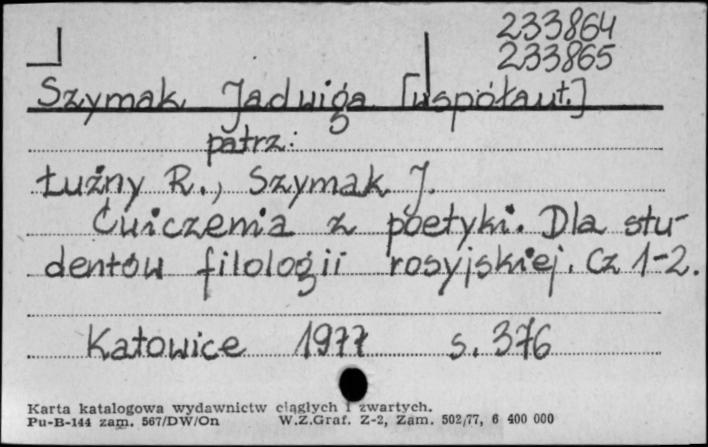 233864
233865
Szymak Jadwiga [współaut.]
patrz:
Łuźny R., Szymak J.
Ćwiczenia z poetyki. Dla stu-
dentów filologii rosyjskiej. Cz 1-2.
Katowice 1977 s. 376
Karta katalogowa wydawnictw ciągłych i zwartych.
Pu-B-144 zam. 567/DW/On W.Z.Graf. Z-2, Zam. 502/77, 6 400 000